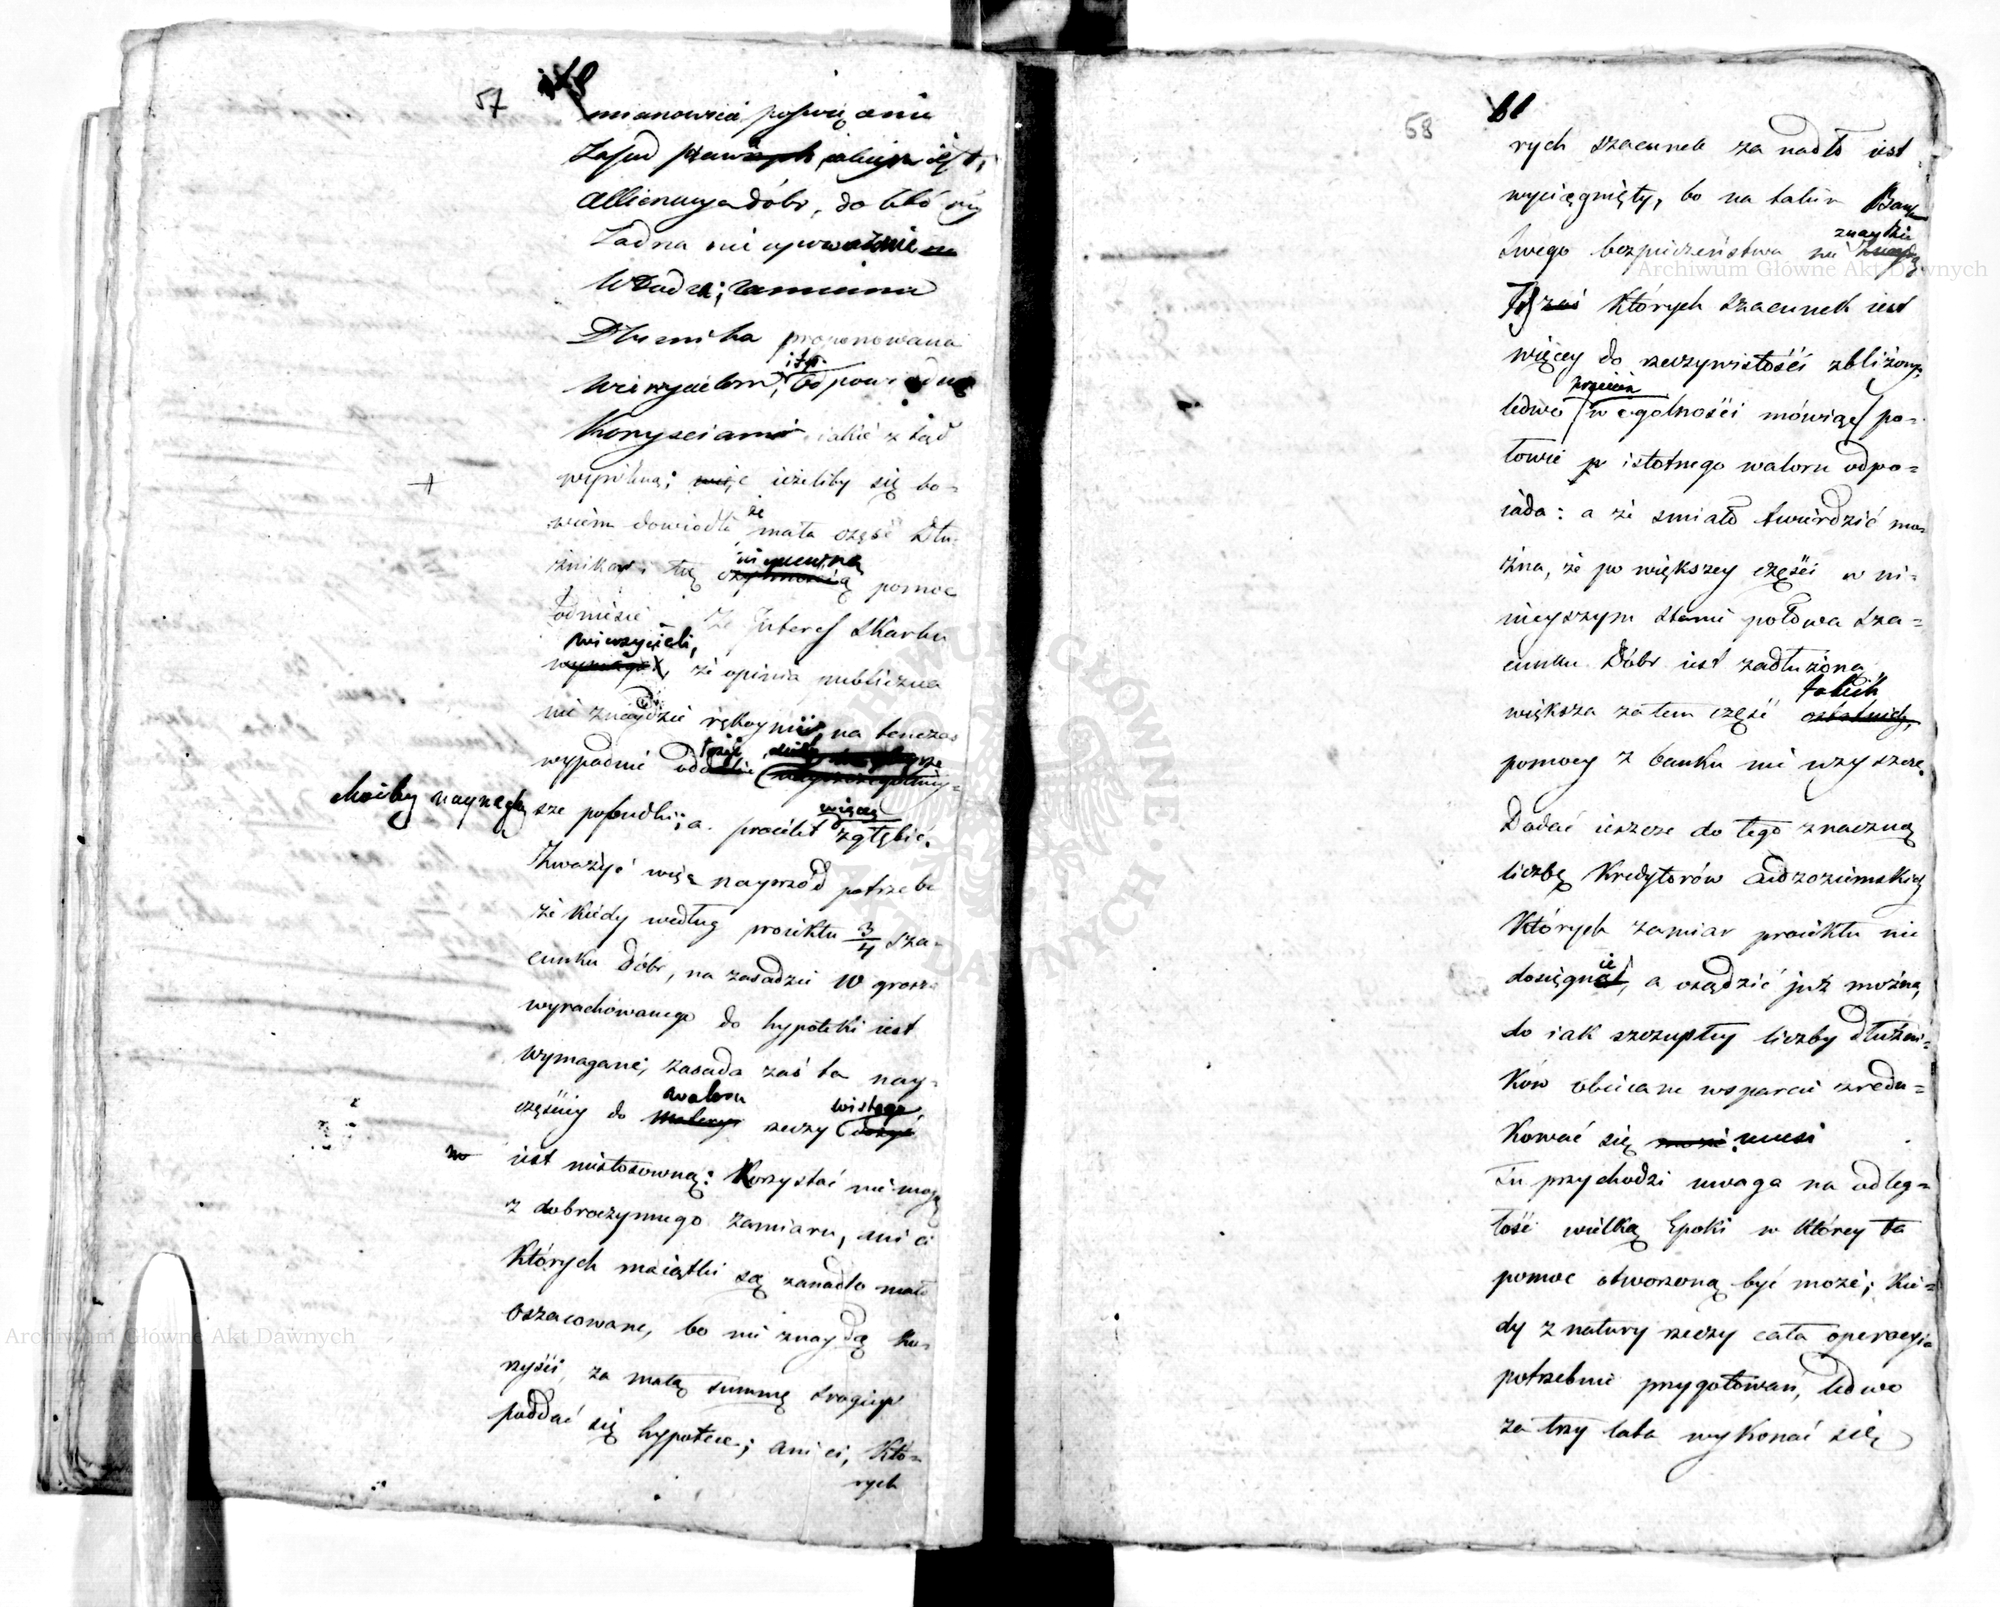 57
mianowicie poswięcenie
zasad
alienacya dóbr, do któréy
żadna nie upoważnia
Władza; zamiana
Dłużnika proponowana
Wierzycielom, odpowiednie
Korzysciami jakie ztąd
wynikną; ieżeliby się bo-
wiem dowiodło że mała część Dłu-
żników tę niepewną pomoc
odniesie że Interess Skarbu
wierzycieli,
że opinia publiczna
nie znaydzie rękoymii, na tenczas
wypadnie
choćby nayżęd sze pobudki; a proiekt więcéy zgłębić.
Zważyć więc naprzód potrzeba
że kiedy według proiektu 3/4 sza-
cunku Dóbr, na zasadzie 10 grosza
wyrachowanego do hypoteki iest
wymagane; zasada zaś ta nay-
częściey do waloru rzeczy wistego
iest niestosowną: Korzystać nie mogą
z dobroczynnego zamiaru, ani ci
Których maiątki są zanadto mało
oszacowane, bo nie znaydą ko-
rzyści, za małą summę srogiey
poddać się hypotece; ani ci, Któ-
rych
58
rych szacunek za nadto iest
wyciągnięty, bo na takim Bank
swego bezpieczeństwa nie znaydzie
Ci zaś Których szacunek iest
więcey do rzeczywistości zbliżony,
ledwo przecie w ogolności mówiąc po-
łowie istotnego waloru odpo-
wiada: a że smiało twierdzić mo-
żna, że po większey części w ni-
nieyszym stanie połowa sza-
cunku Dóbr iest zadłużoną,
większa zatem część takich
pomocy z banku nie uzyszcze.
Dodać ieszcze do tego znaczną
liczbę Kredytorów Cudzoziemskich
Których zamiar proiektu nie
dosięgnie, a osądzić już można,
do iak szczupłey liczby Dłużni-
Ków obiecane wsparcie zredu-
Kować się musi
Tu przychodzi uwaga na odleg-
łość wielką Epoki w Którey ta
pomoc otworzoną być może; Kie-
dy z natury rzeczy cała operacyia
potrzebnie przygotowań, ledwo
za trzy lata wykonać się
Archiwum Główne Akt Dawnych
Archiwum Główne Akt Dawnych
ARCHIWUM GŁÓWNE AKT DAWNYCH